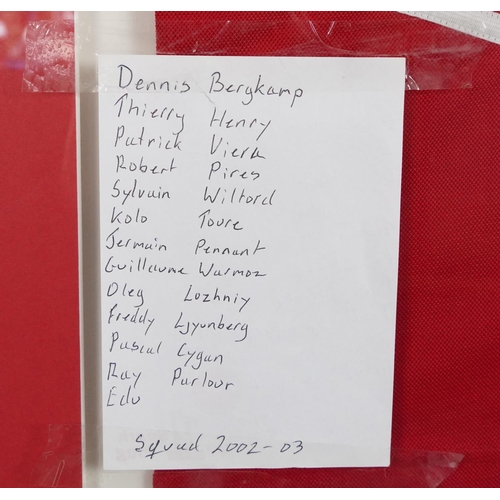 Dennis Bergkamp
Thierry Henry
Patrick Viera
Robert Pires
Sylvain Wiltord
Kolo Toure
Jermain Pennant
Guillaume Warmoz
Oleg Lozhniy
Freddy Ljyunberg
Pascal Cygan
Ray Parlour
Edu
Squad 2002-03